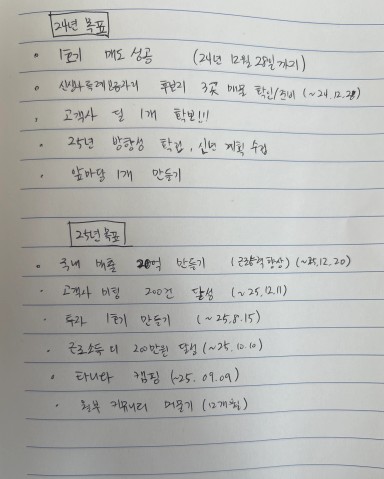 24년 목표
1호기 매도 성공 (24년 12월 28일까지)
후보지 3곳 매물 확인/준비 (~24.12.28)
고객사 딜 1개 확보!!!
25년 방향성 확립, 신년 계획 수립
앞마당 1개 만들기
25년 목표
국내 매출 20억 만들기 (~25.12.20)
고객사 미팅 200건 달성 (~25.12.11)
투자 1호기 만들기 (~25.8.15)
근로소득 더 200만원 달성 (~25.10.10)
캠핑 (~25.09.09)
커뮤니티 머물기 (12개월)